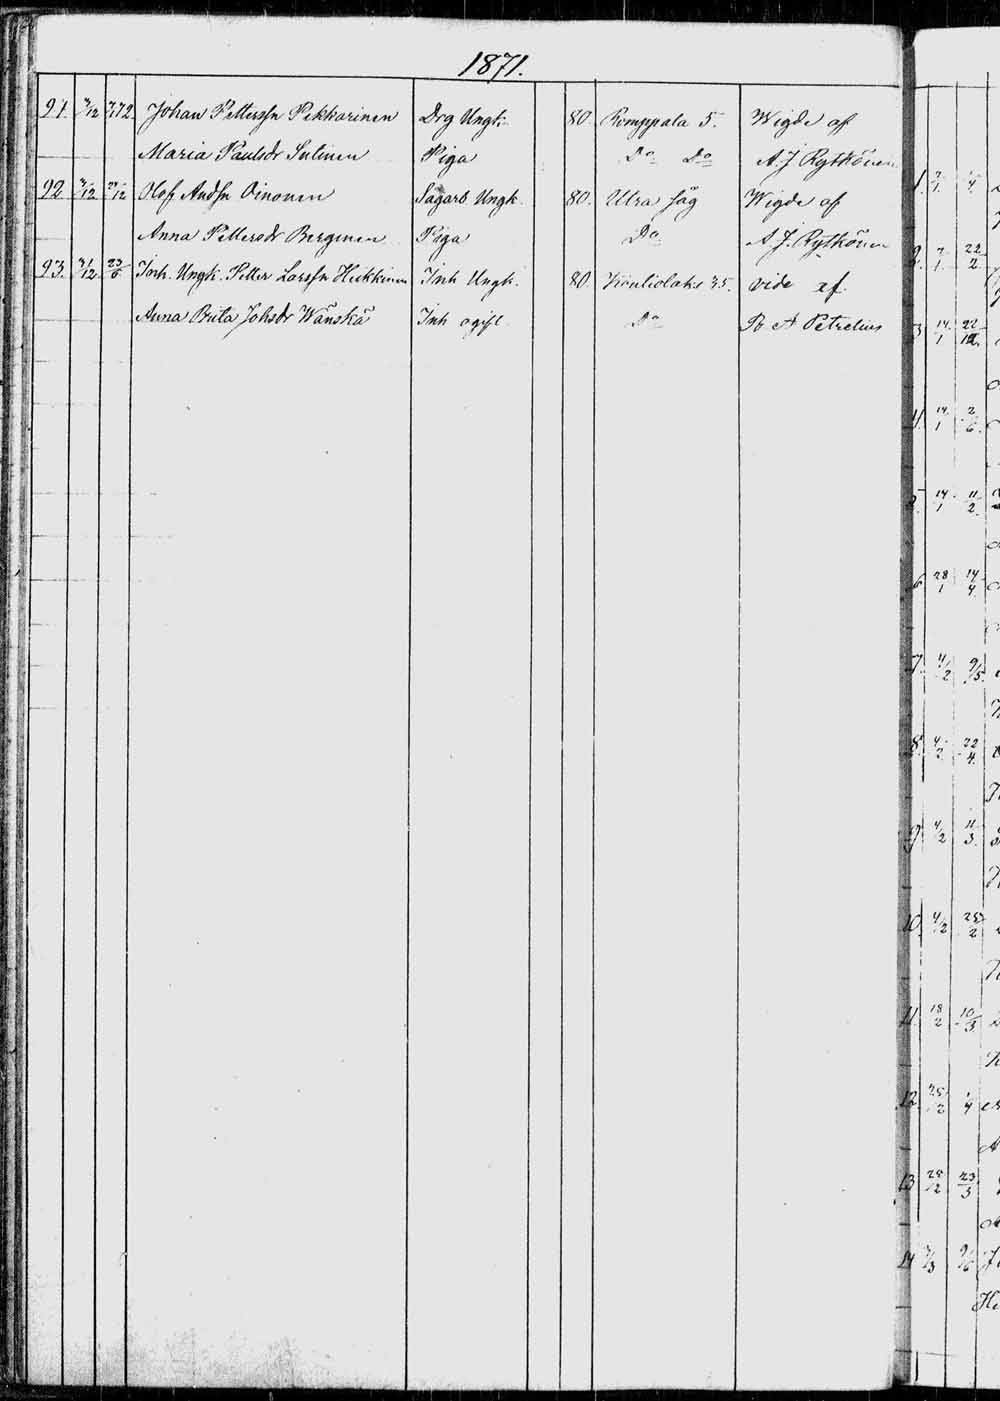 1871.
91. 3/12 7/1 72. Johan Pettersn Pekkarinen Drg Ungk. 80. Romppala 5. Wigde af
Maria Paulsdr Sutinen Piga Do Do A. J. Rytkönen
92 3/12 27/12 Olof Andsn Oinonen Sågarb Ungk. 80. Utra såg Wigde af
Anna Pettersdr Bergman Piga Do A. J. Rytkönen
93. 31/12 23/6 Inh. Ungk. Petter Larssn Heikkinen Inh Ungk. 80. Kontiolaks 35. vide af
Anna Brita Johsdr Wänskä Inh ogift Do Po A Petrelius
1. 7/1. 1/4
2. 7/1. 22/2
3 14/1 22/12.
4. 14/1 2/6.
5. 14/1 11/2.
6 28/1 14/4.
7. 4/2 9/5.
8. 4/2 22/4.
9 4/2 11/3.
10. 4/2 25/2
11. 18/2 10/3
12. 25/2 1/4
13 25/2 23/3
14 3/3 9/6